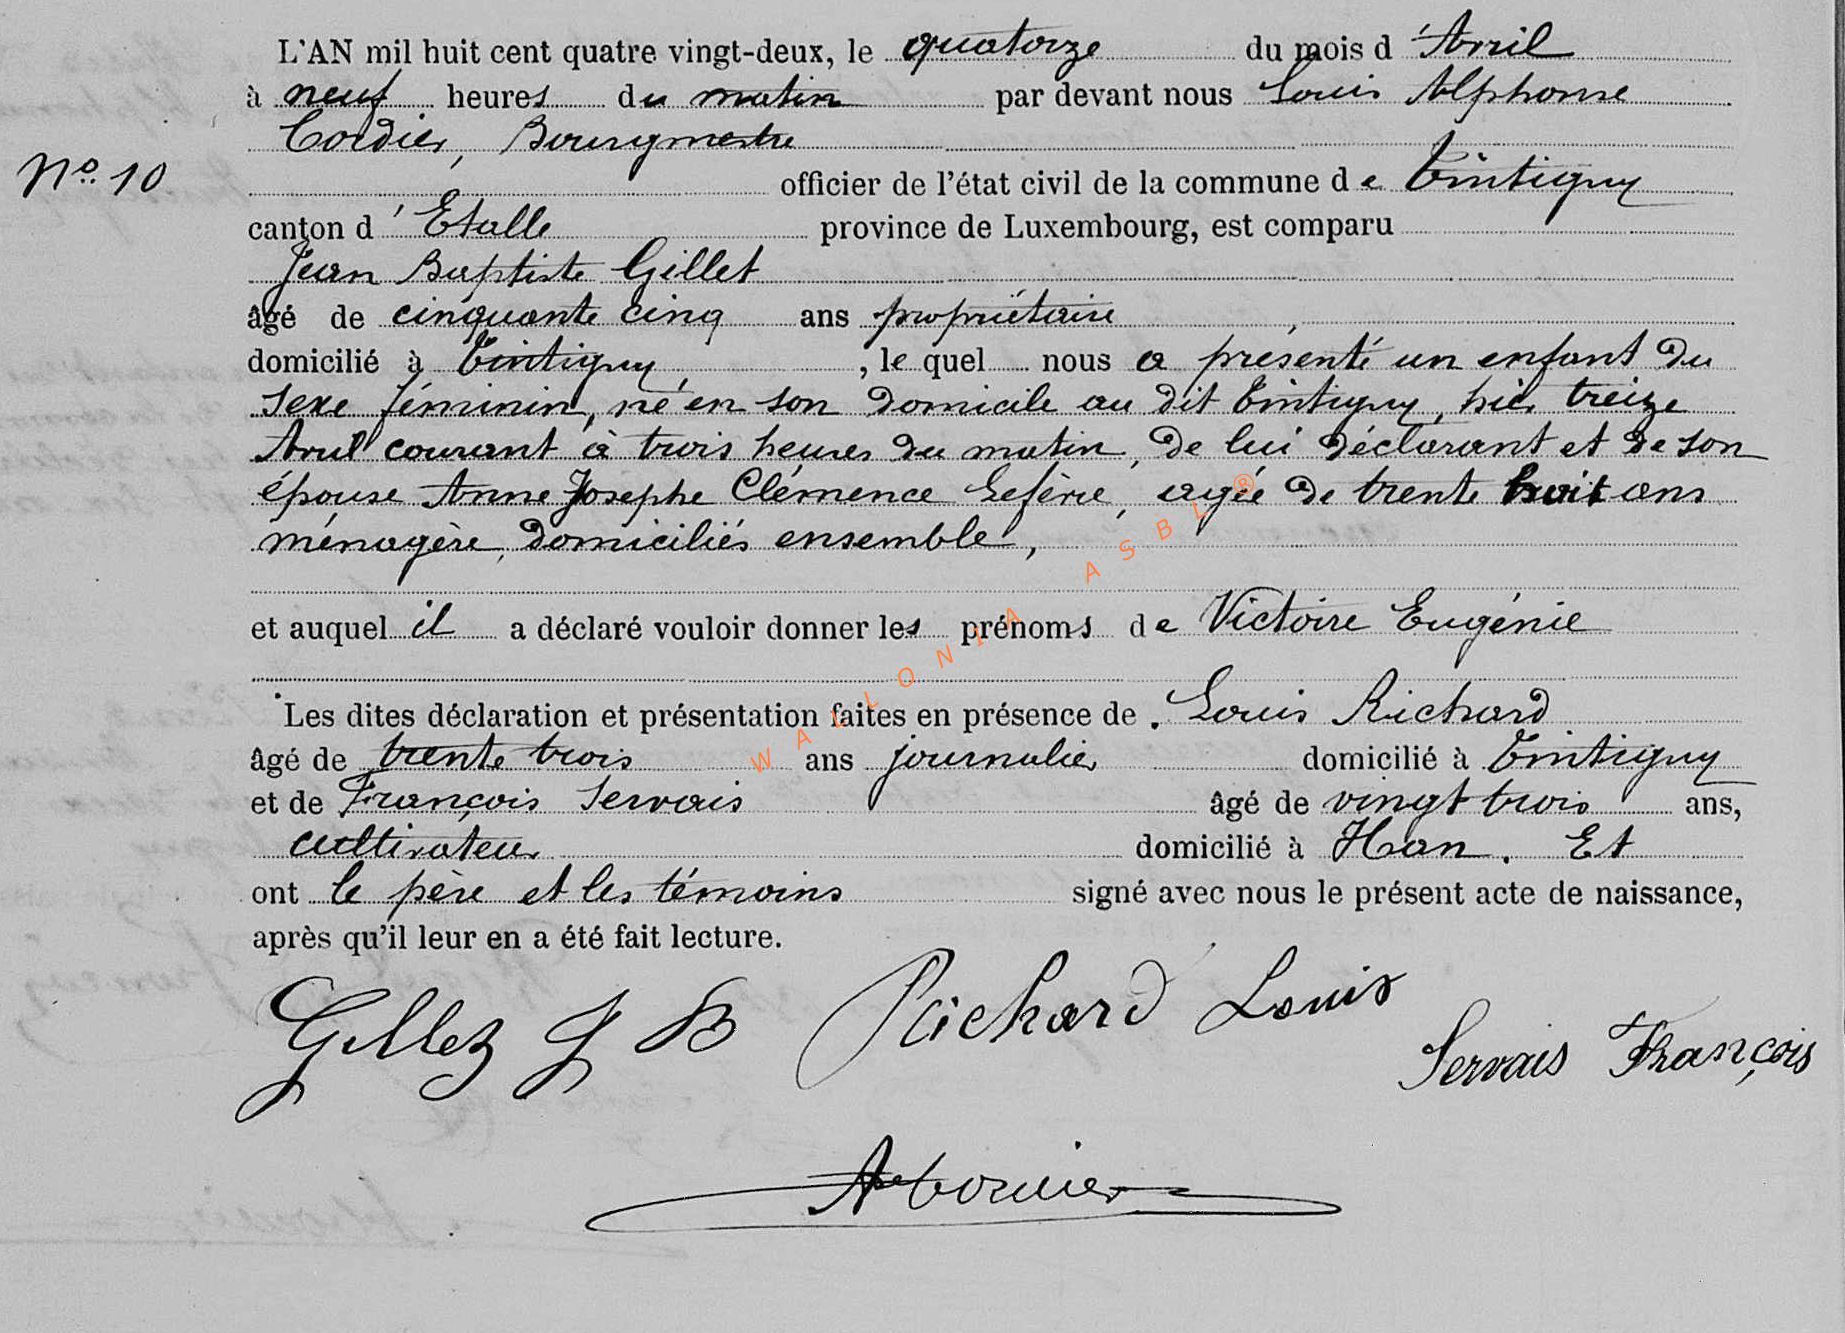 L'AN mil huit cent quatre vingt-deux, le quatorze du mois d'Avril
à neuf heures du matin par devant nous Louis Alphonse
Cordier, Bourgmestre
N° 10
officier de l'état civil de la commune de Tintigny
canton d'Etalle province de Luxembourg, est comparu
Jean Baptiste Gillet
âgé de cinquante cinq ans propriétaire,
domicilié à Tintigny, , lequel nous a présenté un enfant du
sexe féminin, né en son domicile au dit Tintigny, hier treize
Avril courant à trois heures du matin, de lui déclarant et de son
épouse Anne Josephe Clémence Lefèvre, agée de trente huit ans
ménagère, domiciliés ensemble,
et auquel il a déclaré vouloir donner les prénoms de Victoire Eugénie
Les dites déclaration et présentation faites en présence de Louis Richard
âgé de trente trois ans journalier domicilié à Tintigny
et de François Servais âgé de vingt trois ans,
cultivateur domicilié à Han. Et
ont le père et les témoins signé avec nous le présent acte de naissance,
après qu'il leur en a été fait lecture.
Gillet J B Richard Louis
Servais François
WALLONIA ASBL ®